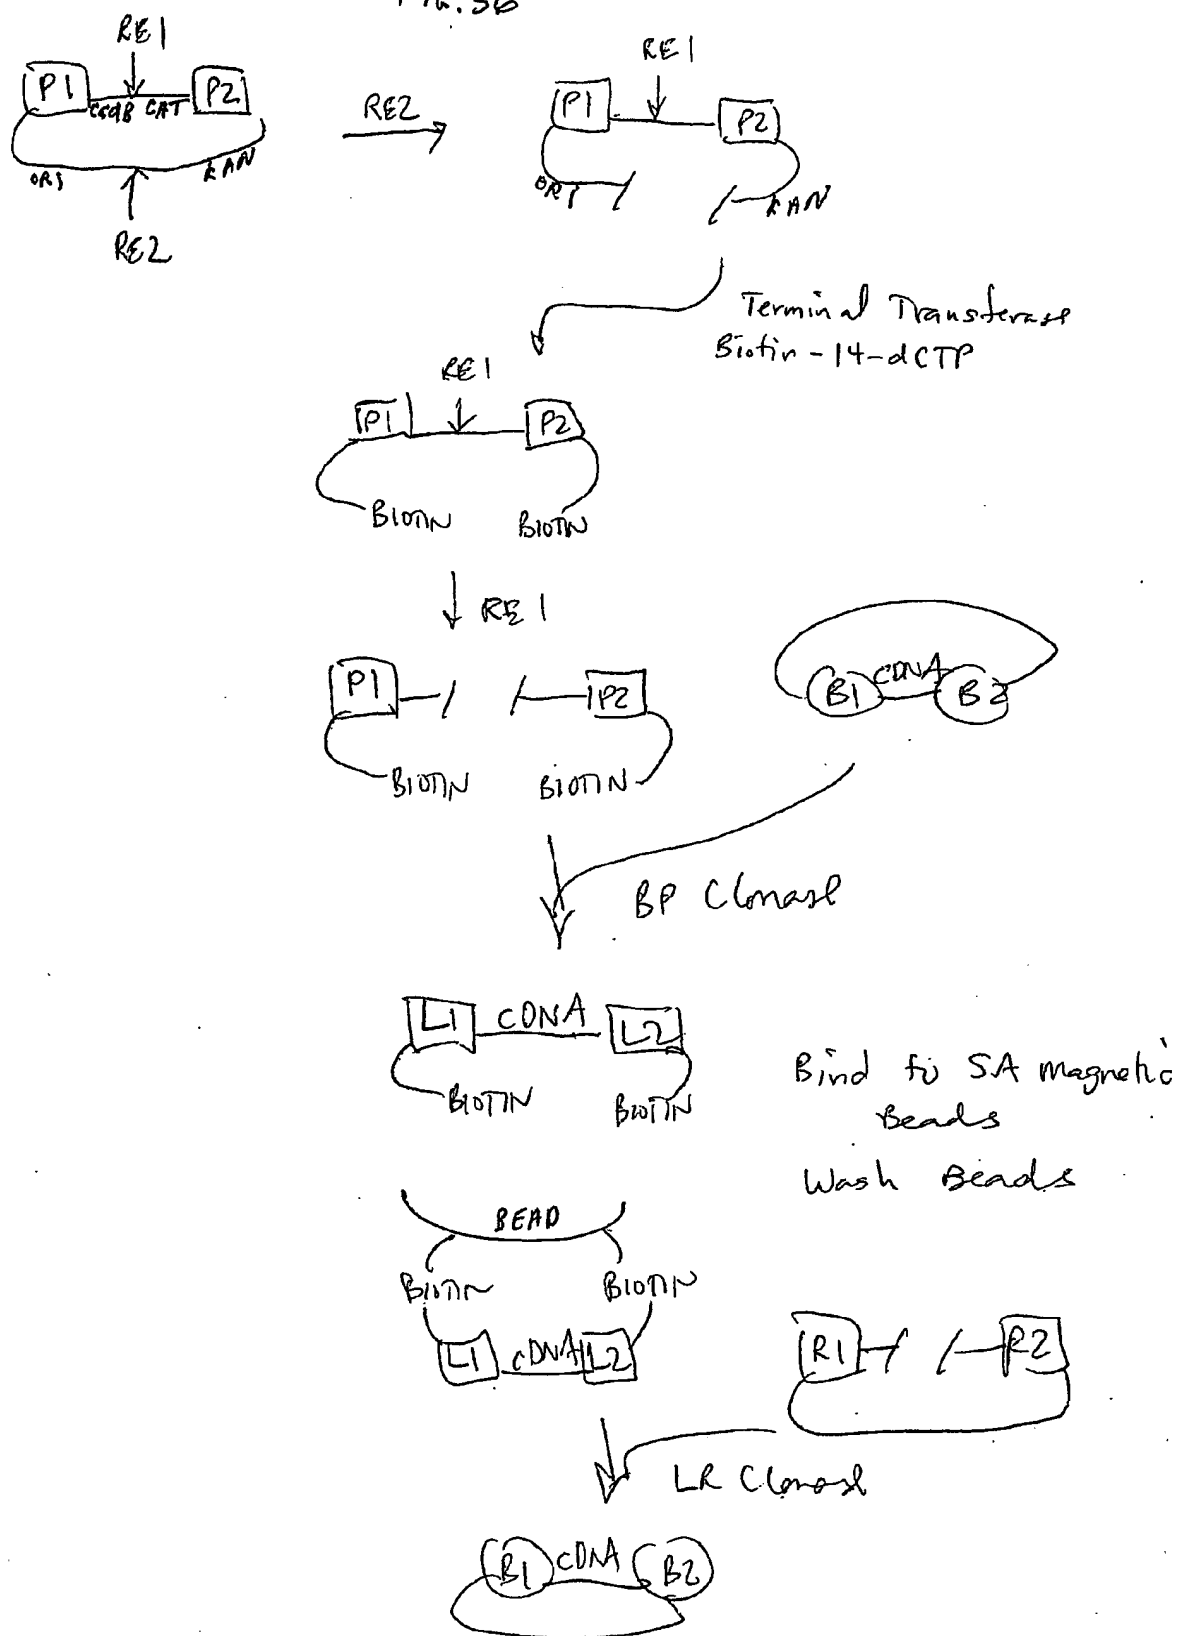 RE1
P1
P2
CCdB CAT
ORI
KAN
RE2
RE2
RE1
P1
P2
ORI
KAN
Terminal Transferase
Biotin-14-dCTP
RE1
P1
P2
BIOTIN
BIOTIN
RE1
P1
P2
BIOTIN
BIOTIN
B1
CDNA
B2
BP Clonase
L1
CDNA
L2
BIOTIN
BIOTIN
Bind to SA magnetic
Beads
Wash Beads
BEAD
BIOTIN
BIOTIN
L1
cDNA
L2
R1
R2
LR Clonase
B1
cDNA
B2